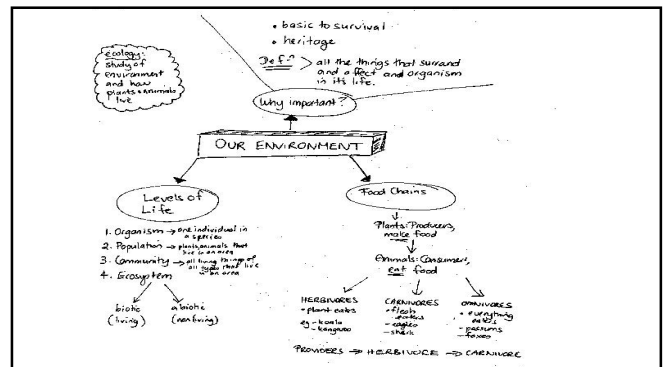 • basic to survival
• heritage
Def:n > all the things that surrand
and affect and organism
in its life.
ecology:
study of
environment
and how
plants + animals
live
Why important?
OUR ENVIRONMENT
Levels of
Life
1. Organism → one individual in
a species
2. Population → plants, animals that
live in an area
3. Community → all living things of
all types that live
in an area
4. Ecosystem
biotic
(living)
abiotic
(nonliving)
Food Chains
Plants: Producers,
make food
Animals: Consumers,
eat food
HERBIVORES
• plant eaters
eg - koala
- kangaroo
CARNIVORES
• flesh
eaters
- eagles
- shark
OMNIVORES
• everything
eaters
- possums
- foxes
PROVIDERS → HERBIVORE → CARNIVORE